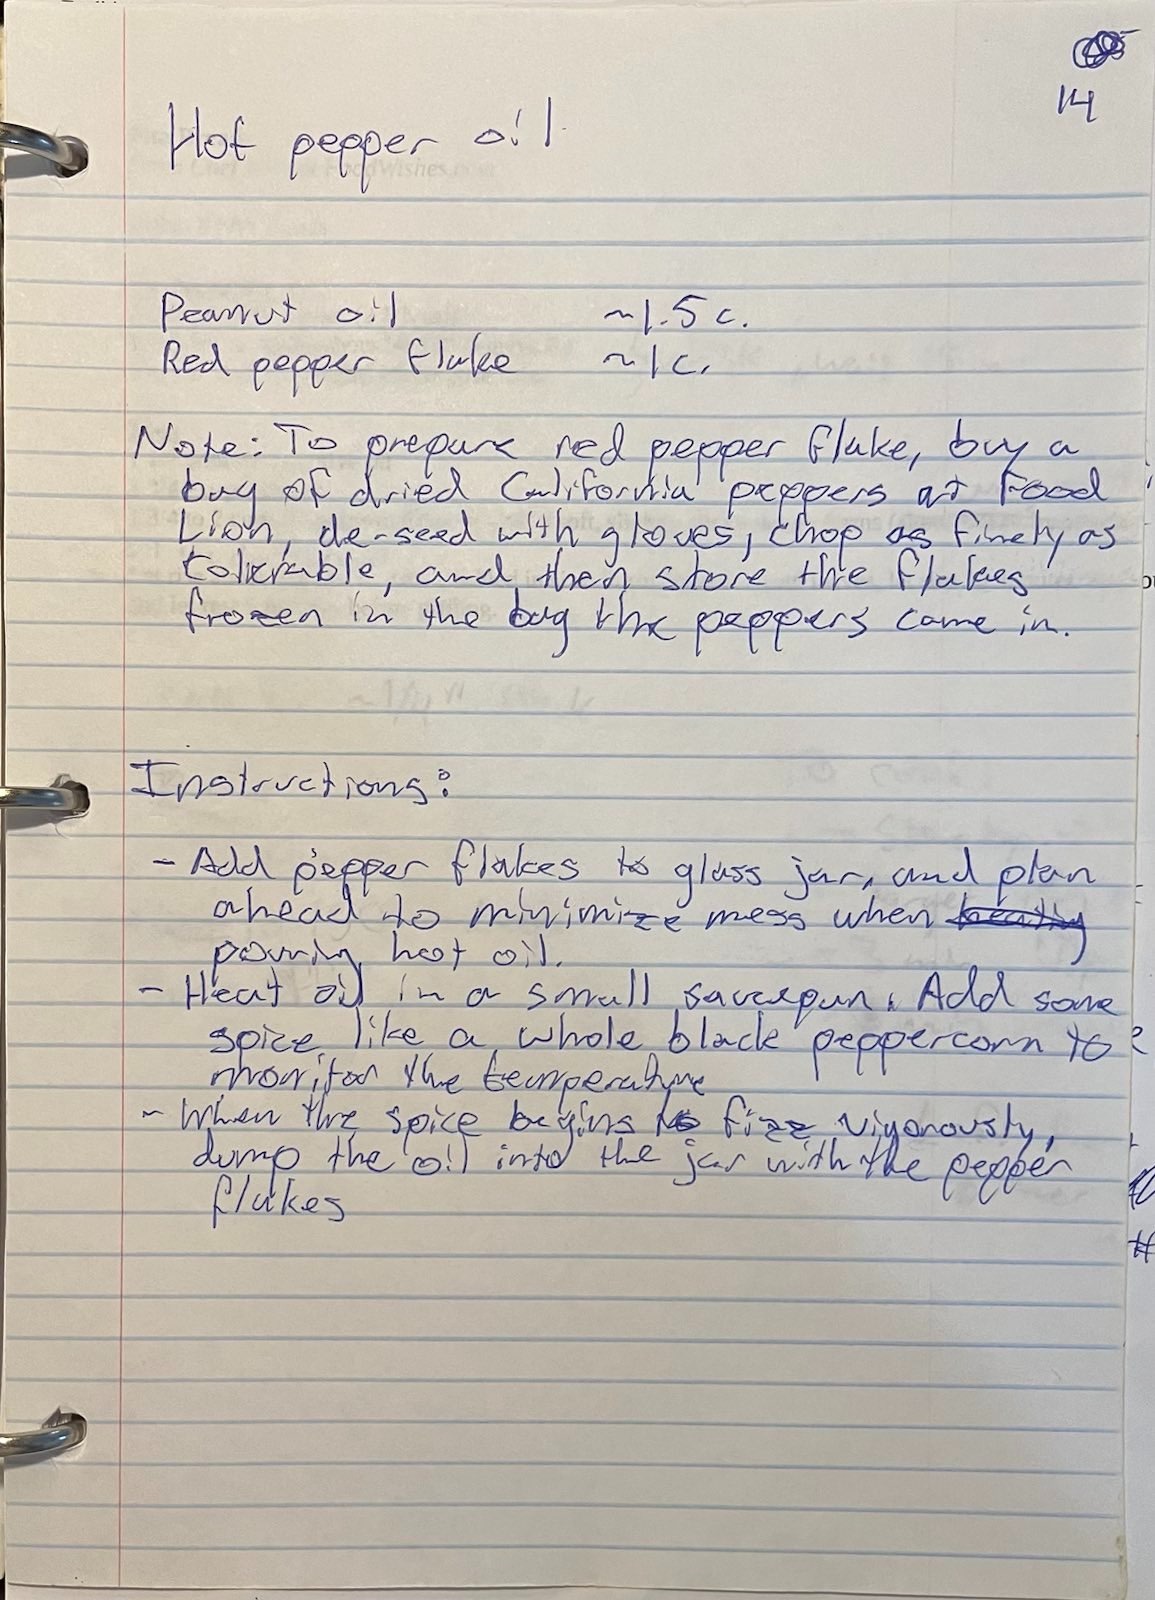 14
Hot pepper oil
Peanut oil ~1.5 c.
Red pepper flake ~1 c.
Note: To prepare red pepper flake, buy a
bag of dried California peppers at Food
Lion, de-seed with gloves, chop as finely as
tolerable, and then store the flakes
frozen in the bag the peppers came in.
Instructions:
- Add pepper flakes to glass jar, and plan
ahead to minimize mess when heating
pouring hot oil.
- Heat oil in a small saucepan. Add some
spice like a whole black peppercorn to
monitor the temperature
- When the spice begins to fizz vigorously,
dump the oil into the jar with the pepper
flakes